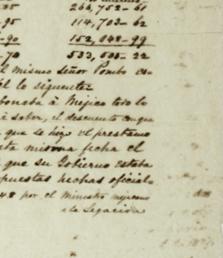 -35 266,752-61
-95 114,703-62
-90 152,048-99
-70 533,505-22
l mismo Señor Pombo es-
él lo siguiente:
bonaba á Méjico todo lo
á saber, el descuento con que
que se hizo el prestamo
sta misma fecha el
que su Gobierno estaba
puestas hechas oficial-
48 por el Ministro mejicano
la Legacion